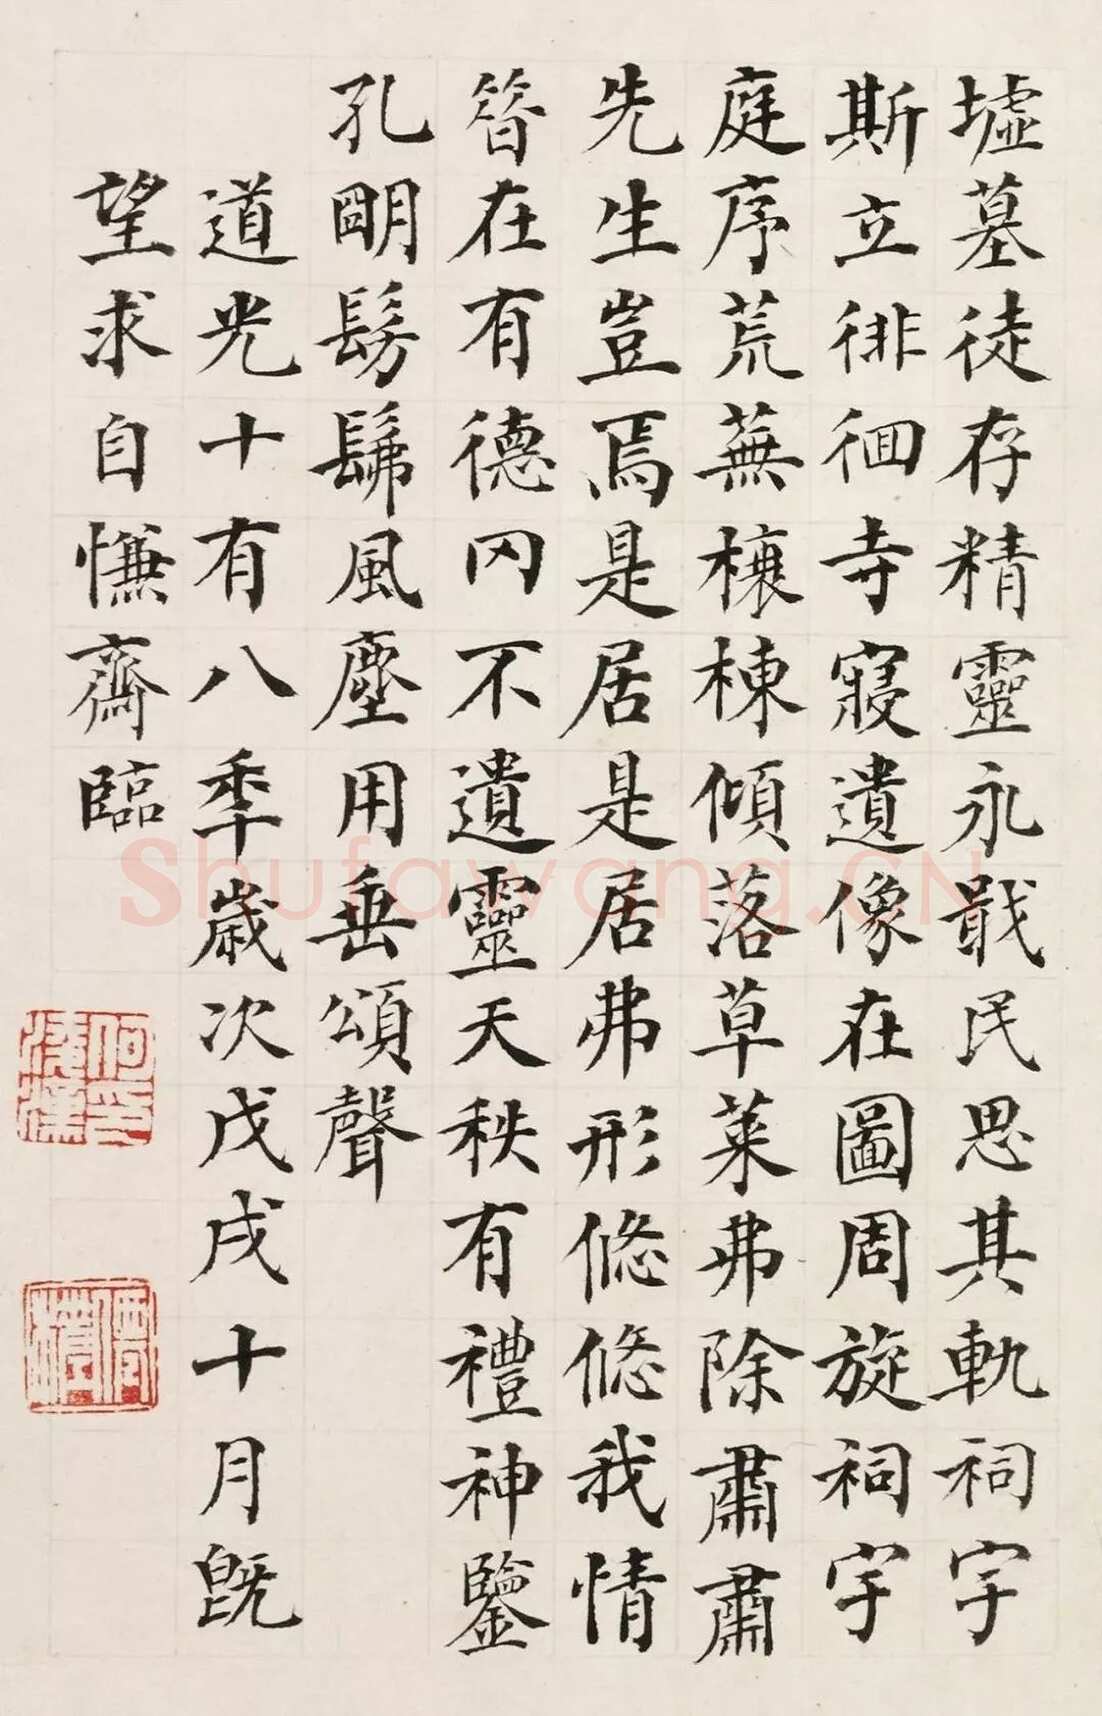 墟墓徒存精靈永戢民思其軌祠宇
斯立徘徊寺寢遺像在圖周旋祠宇
庭序荒蕪榱棟傾落草萊弗除肅肅
先生豈焉是居是居弗形悠悠我情
昔在有德罔不遺靈天秩有禮神鑒
孔明髣髴風塵用垂頌聲
道光十有八季歲次戊戌十月旣
望求自慊齋臨
Shufawang.CN